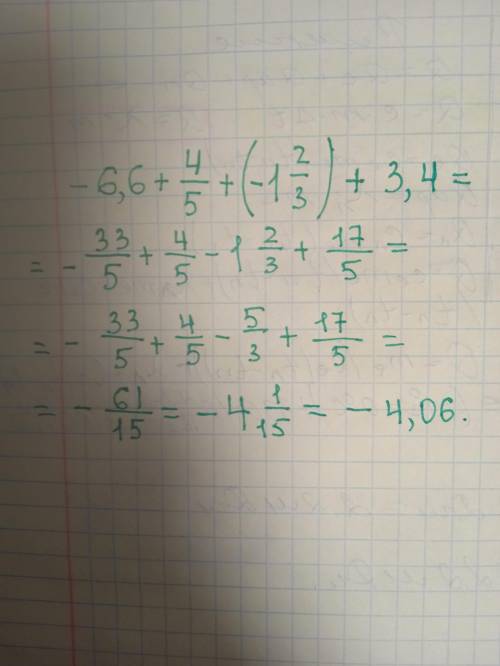 - 6,6 + 4/5 + (-1 2/3) + 3,4 =
= - 33/5 + 4/5 - 1 2/3 + 17/5 =
= - 33/5 + 4/5 - 5/3 + 17/5 =
= - 61/15 = - 4 1/15 = - 4,06.